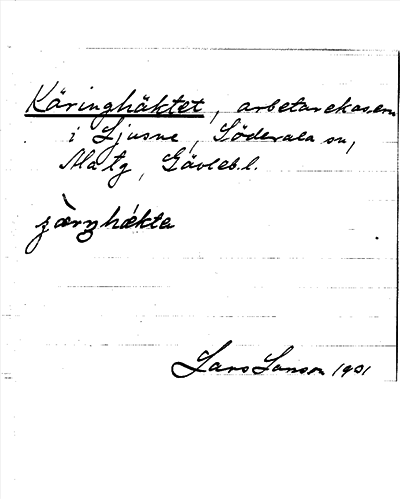 Käringhäktet, arbetarekasern
i Ljusne, Söderala sn,
Ala tg, Gävleb.l.
Lars Larson 1901